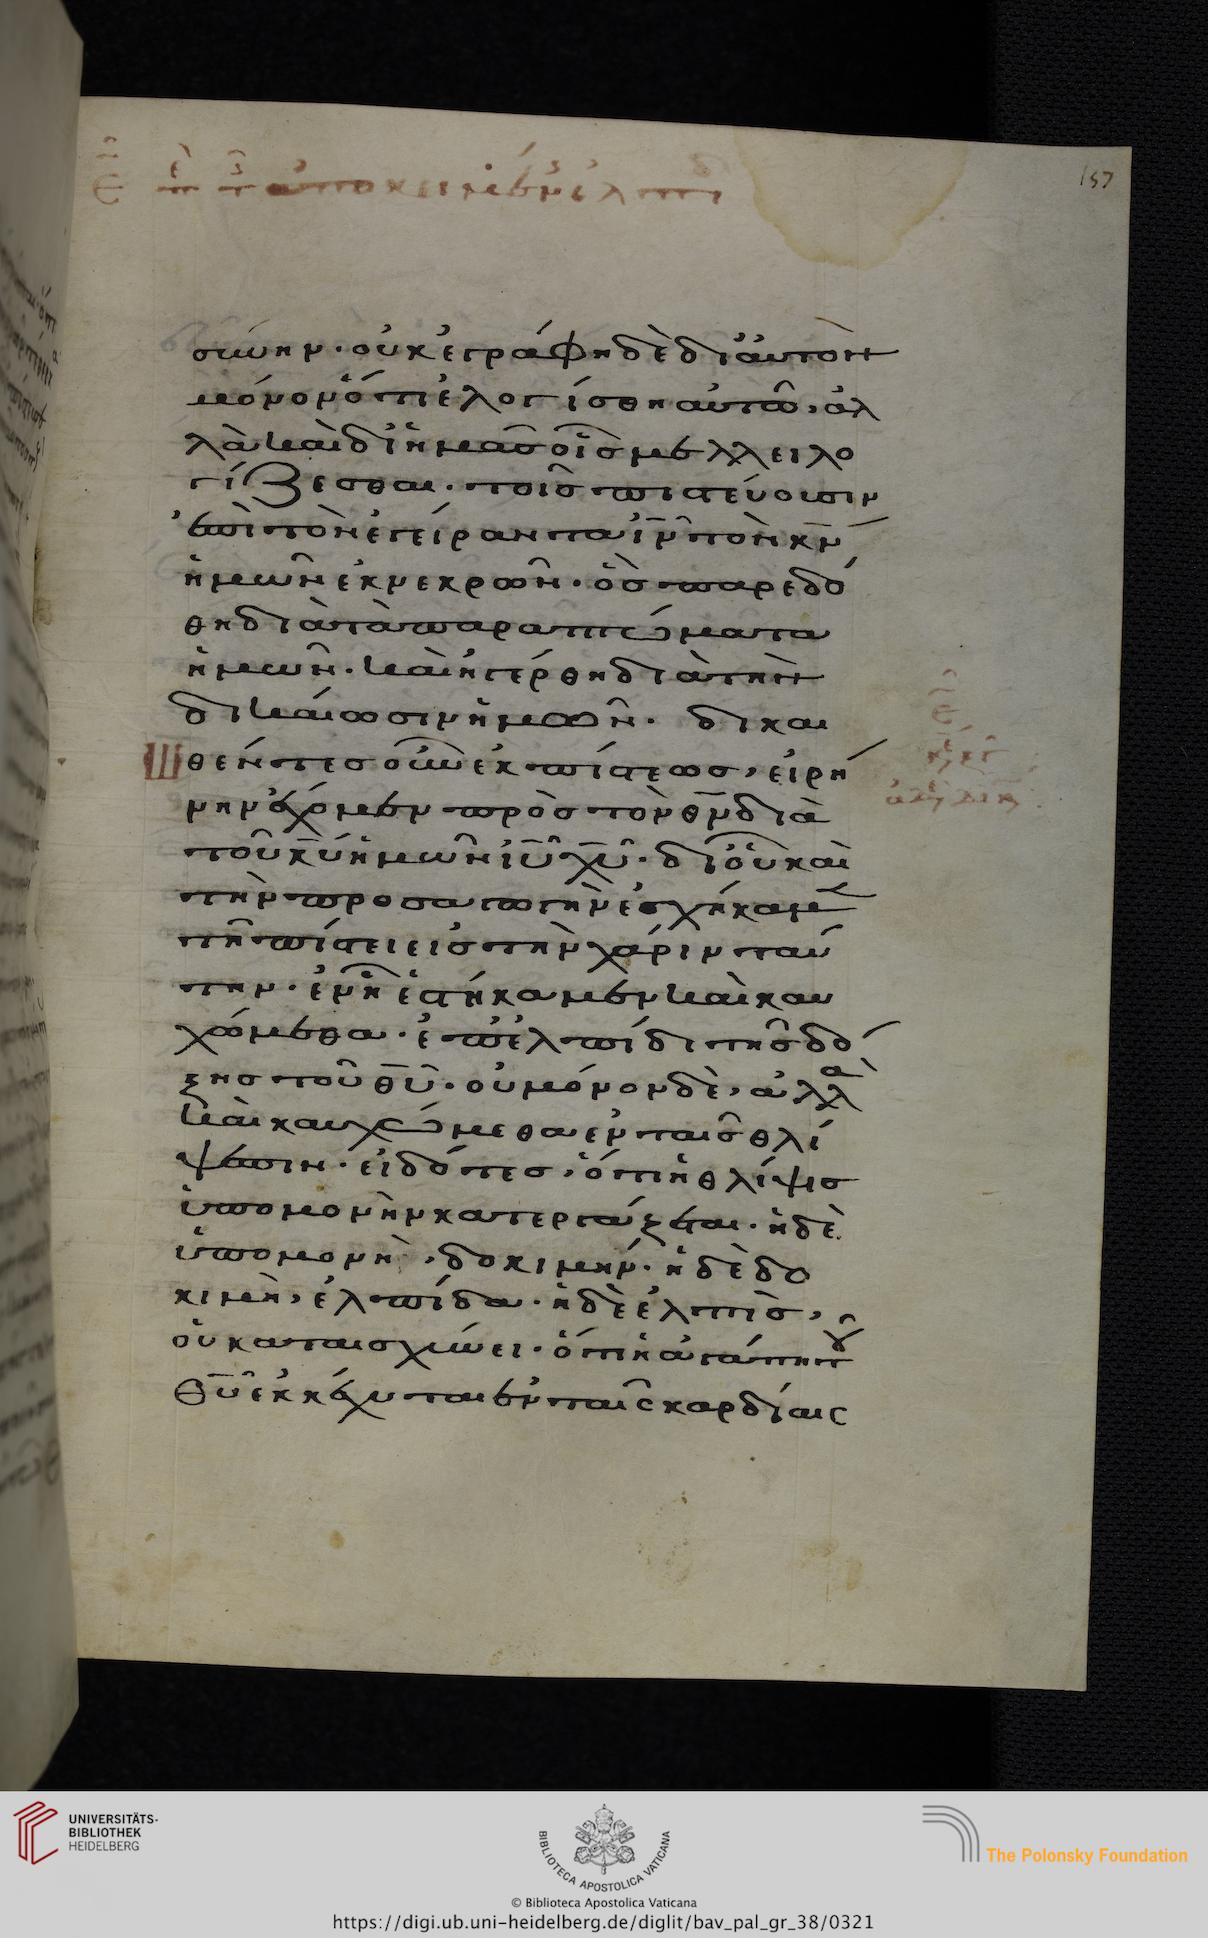 157
σύνην· οὐκ ἐγράφη δὲ δι αὐτὸν
μόνον ὅτι ἐλογίσθη αὐτῶ, ἀλ
λὰ καὶ δι ἡμᾶς οἷς μέλλει λο
γίζεσθαι· τοῖς πιστεύουσιν
ἐπὶ τὸν ἐγείραντα ἰν̄ τὸν κν̄
ἡμῶν ἐκ νεκρῶν· ὃς παρεδό
θη διὰ τὰ παραπτώματα
ἡμῶν· καὶ ἠγέρθη διὰ τὴν
δικαίωσιν ἡμῶν· δικαι
ωθέντες οὖν ἐκ πίστεως, εἰρή
νην ἔχομεν πρὸς τὸν θν̄ διὰ
τοῦ κῡ ἡμῶν ἰῡ χῡ· δι οὗ καὶ
τὴν προσαγωγὴν ἐσχήκαμεν
τῆ πίστει εἰς τὴν χάριν ταύ
την· ἐν ἧ ἑστήκαμεν καὶ καυ
χώμεθα· ἐπ ἐλπίδι τῆς δό
ξης τοῦ θῡ· οὐ μόνον δὲ, ἀλλὰ
καὶ καυχώμεθα ἐν ταῖς θλί
ψεσιν· εἰδότες, ὅτι ἡ θλίψις
ὑπομονὴν κατεργάζεται· ἡ δὲ
ὑπομονὴ, δοκιμήν· ἡ δὲ δο
κιμὴ, ἐλπίδα· ἡ δὲ ἐλπὶς,
οὐ καταισχύνει· ὅτι ἡ ἀγάπη τοῦ
θῡ ἐκκέχυται ἐν ταῖς καρδίαις
UNIVERSITÄTS-
BIBLIOTHEK
HEIDELBERG
BIBLIOTECA APOSTOLICA VATICANA
The Polonsky Foundation
© Biblioteca Apostolica Vaticana
https://digi.ub.uni-heidelberg.de/diglit/bav_pal_gr_38/0321